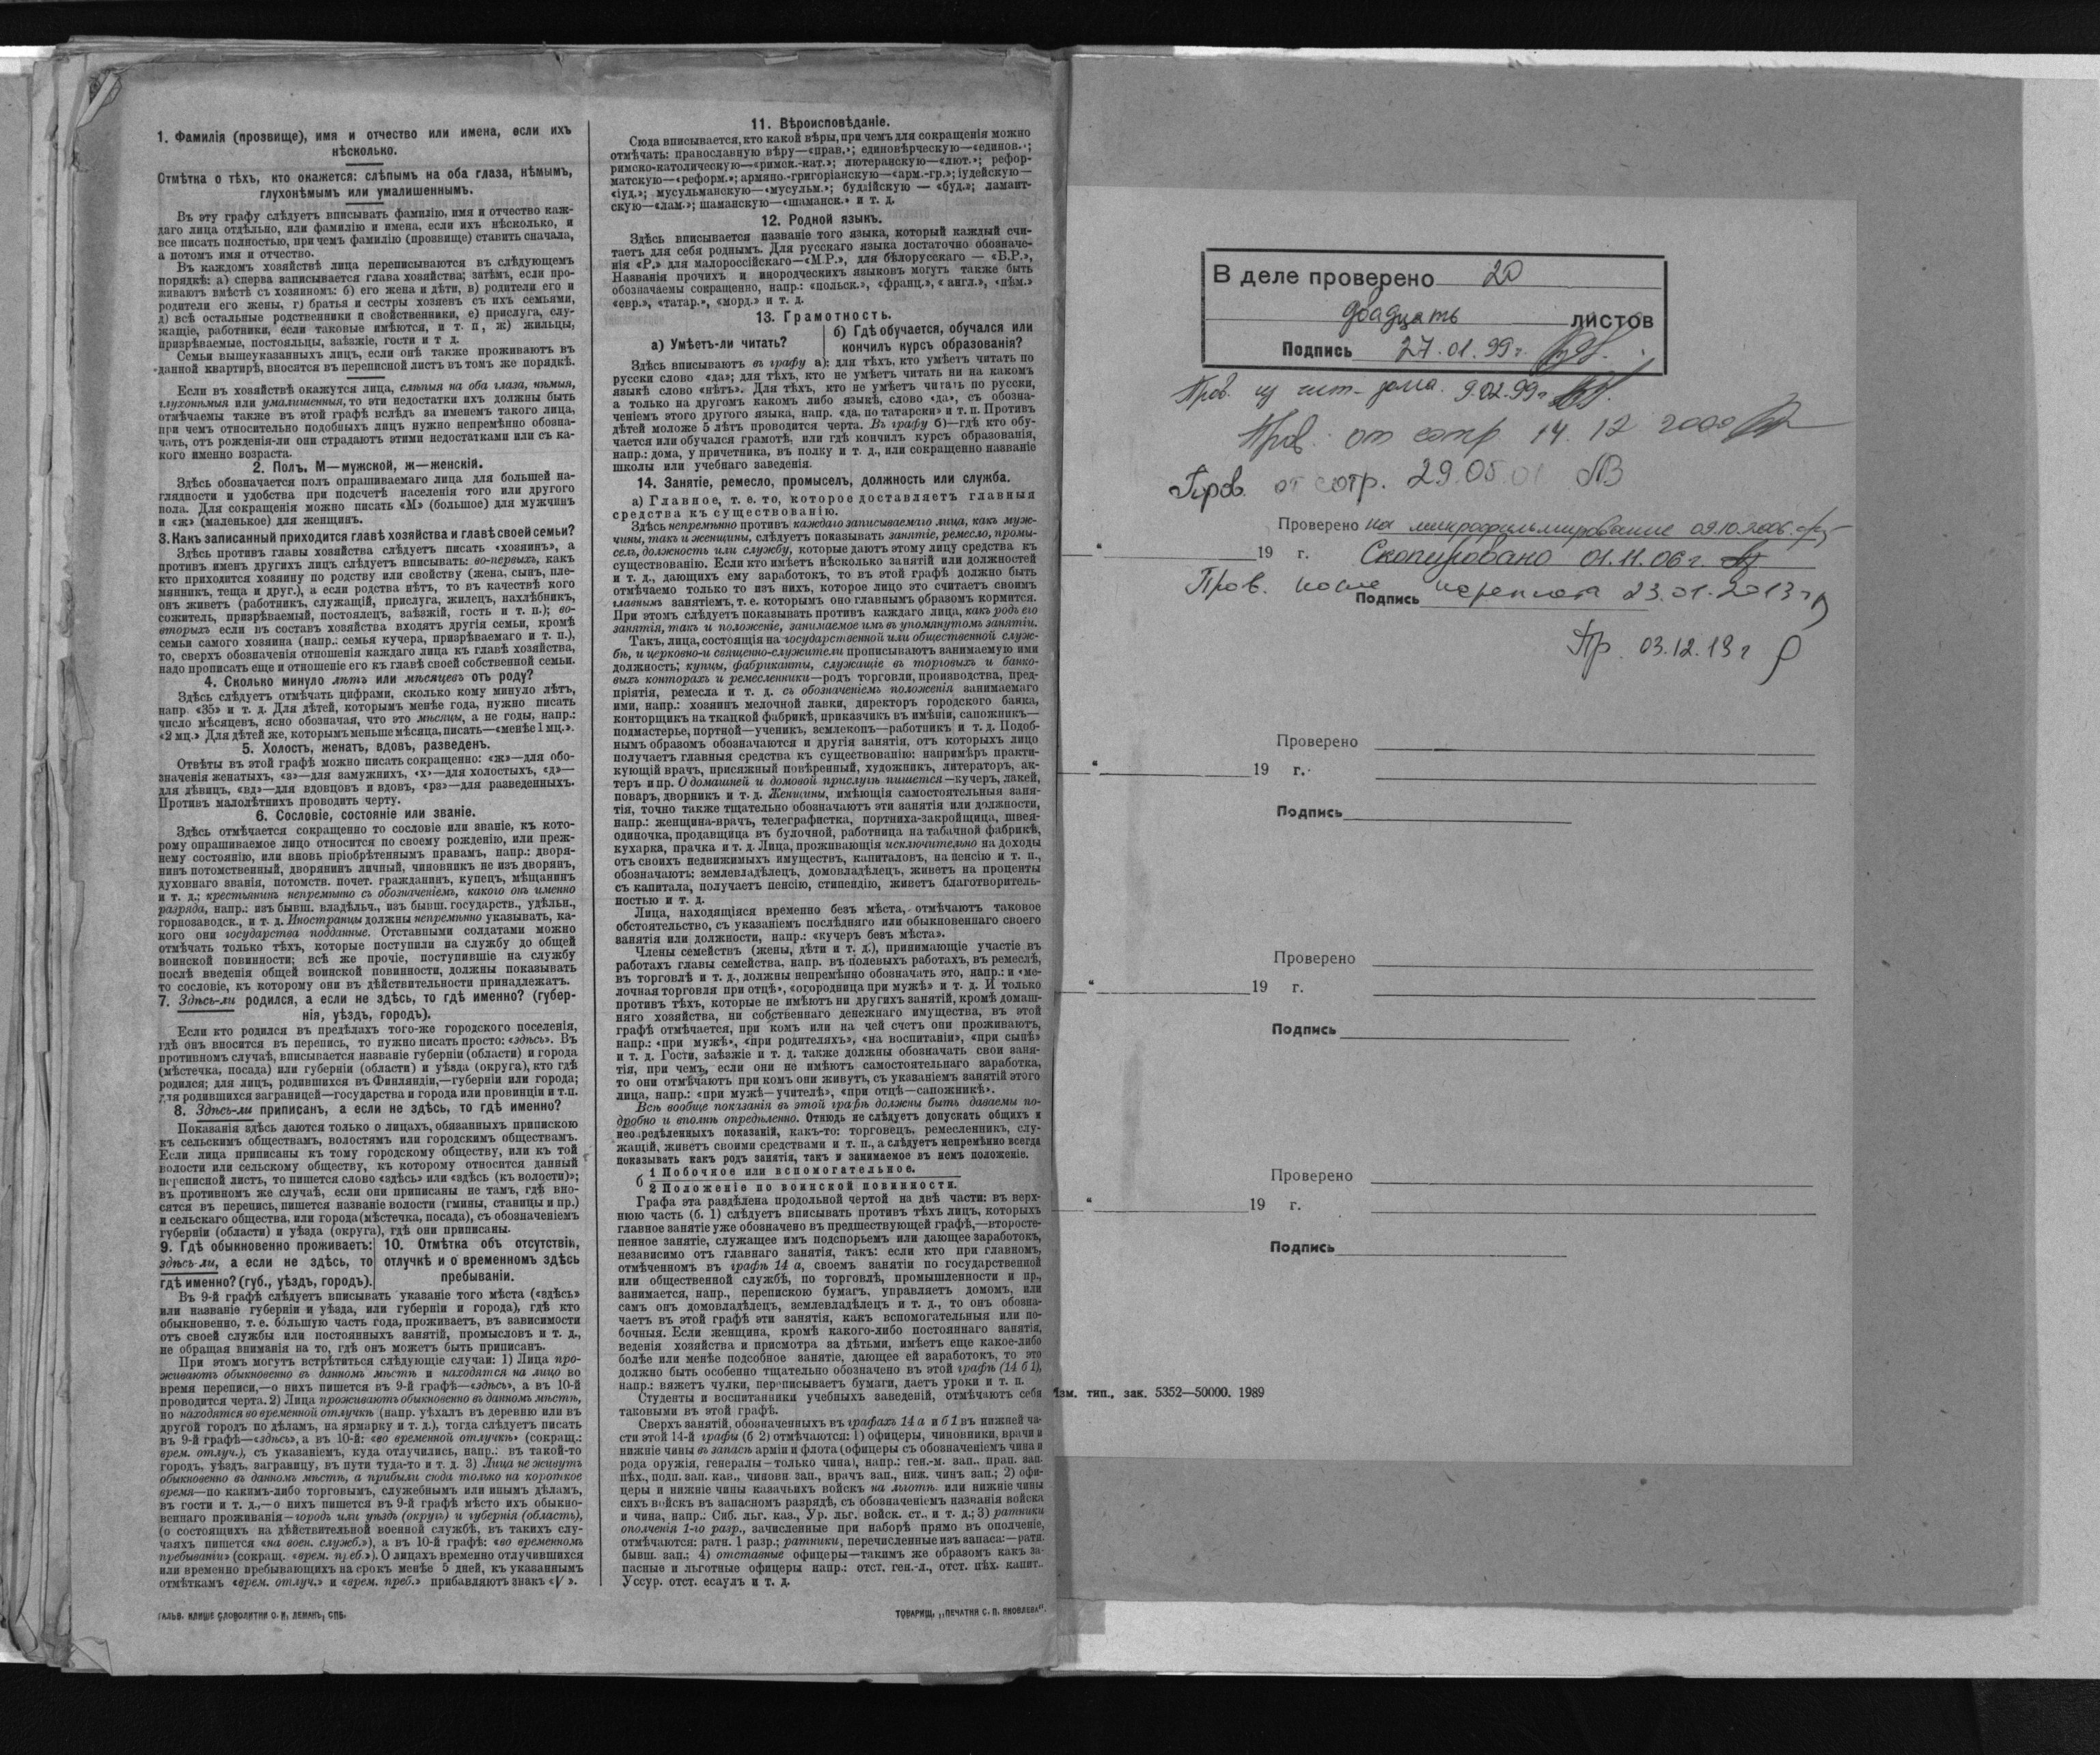 1. Фамилія (прозвище), имя и отчество или имена, если ихъ
нѣсколько.
Отмѣтка о тѣхъ, кто окажется: слѣпымъ на оба глаза, нѣмымъ,
глухонѣмымъ или умалишеннымъ.
Въ эту графу слѣдуетъ вписывать фамилію, имя и отчество каж-
даго лица отдѣльно, или фамилію и имена, если ихъ нѣсколько, и
все писать полностью, при чемъ фамилію (прозвище) ставить сначала,
а потомъ имя и отчество.
Въ каждомъ хозяйствѣ лица переписываются въ слѣдующемъ
порядкѣ: а) сперва записывается глава хозяйства; затѣмъ, если про-
живаютъ вмѣстѣ съ хозяиномъ: б) его жена и дѣти, в) родители его и
родители его жены, г) братья и сестры хозяевъ съ ихъ семьями,
д) всѣ остальные родственники и свойственники, е) прислуга, слу-
жащіе, работники, если таковые имѣются, и т. п, ж) жильцы,
призрѣваемые, постояльцы, заѣзжіе, гости и т д.
Семьи вышеуказанныхъ лицъ, если онѣ также проживаютъ въ
данной квартирѣ, вносятся въ переписной листъ въ томъ же порядкѣ.
Если въ хозяйствѣ окажутся лица, слѣпыя на оба глаза, нѣмыя,
глухонѣмыя или умалишенныя, то эти недостатки ихъ должны быть
отмѣчаемы также въ этой графѣ вслѣдъ за именемъ такого лица,
при чемъ относительно подобныхъ лицъ нужно непремѣнно обозна-
чать, отъ рожденія-ли они страдаютъ этими недостатками или съ ка-
кого именно возраста.
2. Полъ, М—мужской, ж—женскій.
Здѣсь обозначается полъ опрашиваемаго лица для большей на-
глядности и удобства при подсчетѣ населенія того или другого
пола. Для сокращенія можно писать «М» (большое) для мужчинъ
и «ж» (маленькое) для женщинъ.
3. Какъ записанный приходится главѣ хозяйства и главѣ своей семьи?
Здѣсь противъ главы хозяйства слѣдуетъ писать «хозяинъ», а
противъ именъ другихъ лицъ слѣдуетъ вписывать: во-первыхъ, какъ
кто приходится хозяину по родству или свойству (жена, сынъ, пле-
мянникъ, теща и друг.), а если родства нѣтъ, то въ качествѣ кого
онъ живетъ (работникъ, служащій, прислуга, жилецъ, нахлѣбникъ,
сожитель, призрѣваемый, постоялецъ, заѣзжій, гость и т. п.); во-
вторыхъ если въ составъ хозяйства входятъ другія семьи, кромѣ
семьи самого хозяина (напр.: семья кучера, призрѣваемаго и т. п.),
то, сверхъ обозначенія отношенія каждаго лица къ главѣ хозяйства,
надо прописать еще и отношеніе его къ главѣ своей собственной семьи.
4. Сколько минуло лѣтъ или мѣсяцевъ отъ роду?
Здѣсь слѣдуетъ отмѣчать цифрами, сколько кому минуло лѣтъ,
напр. «35» и т. д. Для дѣтей, которымъ менѣе года, нужно писать
число мѣсяцевъ, ясно обозначая, что это мѣсяцы, а не годы, напр.:
«2 мц.» Для дѣтей же, которымъ меньше мѣсяца, писать—«менѣе 1 мц.».
5. Холостъ, женатъ, вдовъ, разведенъ.
Отвѣты въ этой графѣ можно писать сокращенно: «ж»—для обо-
значенія женатыхъ, «з»—для замужнихъ, «х»—для холостыхъ, «д»—
для дѣвицъ, «вд»—для вдовцовъ и вдовъ, «рз»—для разведенныхъ.
Противъ малолѣтнихъ проводить черту.
6. Сословіе, состояніе или званіе.
Здѣсь отмѣчается сокращенно то сословіе или званіе, къ кото-
рому опрашиваемое лицо относится по своему рожденію, или преж-
нему состоянію, или вновь пріобрѣтеннымъ правамъ, напр.: дворя-
нинъ потомственный, дворянинъ личный, чиновникъ не изъ дворянъ,
духовнаго званія, потомств. почет. гражданинъ, купецъ, мѣщанинъ
и т. д.; крестьянинъ непремѣнно съ обозначеніемъ, какого онъ именно
разряда, напр.: изъ бывш. владѣльч., изъ бывш. государств., удѣльн.,
горнозаводск., и т. д. Иностранцы должны непремѣнно указывать, ка-
кого они государства подданные. Отставными солдатами можно
отмѣчать только тѣхъ, которые поступили на службу до общей
воинской повинности; всѣ же прочіе, поступившіе на службу
послѣ введенія общей воинской повинности, должны показывать
то сословіе, къ которому они въ дѣйствительности принадлежатъ.
7. Здѣсь-ли родился, а если не здѣсь, то гдѣ именно? (губер-
нія, уѣздъ, городъ).
Если кто родился въ предѣлахъ того-же городского поселенія,
гдѣ онъ вносится въ перепись, то нужно писать просто: «здѣсь». Въ
противномъ случаѣ, вписывается названіе губерніи (области) и города
(мѣстечка, посада) или губерніи (области) и уѣзда (округа), кто гдѣ
родился; для лицъ, родившихся въ Финляндіи,—губерніи или города;
для родившихся заграницей—государства и города или провинціи и т.п.
8. Здѣсь-ли приписанъ, а если не здѣсь, то гдѣ именно?
Показанія здѣсь даются только о лицахъ, обязанныхъ припискою
къ сельскимъ обществамъ, волостямъ или городскимъ обществамъ.
Если лица приписаны къ тому городскому обществу, или къ той
волости или сельскому обществу, къ которому относится данный
переписной листъ, то пишется слово «здѣсь» или «здѣсь (къ волости)»;
въ противномъ же случаѣ, если они приписаны не тамъ, гдѣ вно-
сятся въ перепись, пишется названіе волости (гмины, станицы и пр.)
и сельскаго общества, или города (мѣстечка, посада), съ обозначеніемъ
губерніи (области) и уѣзда (округа), гдѣ они приписаны.
9. Гдѣ обыкновенно проживаетъ:
здѣсь-ли, а если не здѣсь, то
гдѣ именно? (губ., уѣздъ, городъ).
10. Отмѣтка объ отсутствіи,
отлучкѣ и о временномъ здѣсь
пребываніи.
Въ 9-й графѣ слѣдуетъ вписывать указаніе того мѣста («здѣсь»
или названіе губерніи и уѣзда, или губерніи и города), гдѣ кто
обыкновенно, т. е. бо́льшую часть года, проживаетъ, въ зависимости
отъ своей службы или постоянныхъ занятій, промысловъ и т. д.,
не обращая вниманія на то, гдѣ онъ можетъ быть приписанъ.
При этомъ могутъ встрѣтиться слѣдующіе случаи: 1) Лица про-
живаютъ обыкновенно въ данномъ мѣстѣ и находятся на лицо во
время переписи,—о нихъ пишется въ 9-й графѣ—«здѣсь», а въ 10-й
проводится черта. 2) Лица проживаютъ обыкновенно въ данномъ мѣстѣ,
но находятся во временной отлучкѣ (напр. уѣхалъ въ деревню или въ
другой городъ по дѣламъ, на ярмарку и т. д.), тогда слѣдуетъ писать
въ 9-й графѣ—«здѣсь», а въ 10-й: «во временной отлучкѣ» (сокращ.:
врем. отлуч.), съ указаніемъ, куда отлучились, напр.: въ такой-то
городъ, уѣздъ, заграницу, въ пути туда-то и т. д. 3) Лица не живутъ
обыкновенно въ данномъ мѣстѣ, а прибыли сюда только на короткое
время—по какимъ-либо торговымъ, служебнымъ или инымъ дѣламъ,
въ гости и т. д.,—о нихъ пишется въ 9-й графѣ мѣсто ихъ обыкно-
веннаго проживанія—городъ или уѣздъ (округъ) и губернія (область),
(о состоящихъ на дѣйствительной военной службѣ, въ такихъ слу-
чаяхъ пишется «на воен. служб.»), а въ 10-й графѣ: «во временномъ
пребываніи» (сокращ. «врем. преб.»). О лицахъ временно отлучившихся
или временно пребывающихъ на срокъ менѣе 5 дней, къ указаннымъ
отмѣткамъ «врем. отлуч.» и «врем. преб.» прибавляютъ знакъ «V».
ГАЛЬВ. КЛИШЕ СЛОВОЛИТНИ О. И. ЛЕМАНЪ, СПБ.
11. Вѣроисповѣданіе.
Сюда вписывается, кто какой вѣры, при чемъ для сокращенія можно
отмѣчать: православную вѣру—«прав.»; единовѣрческую—«единов.»;
римско-католическую—«римск.-кат.»; лютеранскую—«лют.»; рефор-
матскую—«реформ.»; армяно.-григоріанскую—«арм.-гр.»; іудейскую—
«іуд.»; мусульманскую—«мусульм.»; буддійскую — «буд.»; ламаит-
скую—«лам.»; шаманскую—«шаманск.» и т. д.
12. Родной языкъ.
Здѣсь вписывается названіе того языка, который каждый счи-
таетъ для себя роднымъ. Для русскаго языка достаточно обозначе-
нія «Р.» для малороссійскаго—«М.Р.», для бѣлорусскаго — «Б.Р.»,
Названія прочихъ и инородческихъ языковъ могутъ также быть
обозначаемы сокращенно, напр.: «польск.», «франц.», « англ.», «нѣм.»
«евр.», «татар.», «морд.» и т. д.
13. Грамотность.
а) Умѣетъ-ли читать?
б) Гдѣ обучается, обучался или
кончилъ курсъ образованія?
Здѣсь вписываютъ въ графу а): для тѣхъ, кто умѣетъ читать по
русски слово «да»; для тѣхъ, кто не умѣетъ читать ни на какомъ
языкѣ слово «нѣтъ». Для тѣхъ, кто не умѣетъ читать по русски,
а только на другомъ какомъ либо языкѣ, слово «да», съ обозна-
ченіемъ этого другого языка, напр. «да, по татарски» и т. п. Противъ
дѣтей моложе 5 лѣтъ проводится черта. Въ графу б)—гдѣ кто обу-
чается или обучался грамотѣ, или гдѣ кончилъ курсъ образованія,
напр.: дома, у причетника, въ полку и т. д., или сокращенно названіе
школы или учебнаго заведенія.
14. Занятіе, ремесло, промыселъ, должность или служба.
а) Главное, т. е. то, которое доставляетъ главныя
средства къ существованію.
Здѣсь непремѣнно противъ каждаго записываемаго лица, какъ муж-
чины, такъ и женщины, слѣдуетъ показывать занятіе, ремесло, промы-
селъ, должность или службу, которые даютъ этому лицу средства къ
существованію. Если кто имѣетъ нѣсколько занятій или должностей
и т. д., дающихъ ему заработокъ, то въ этой графѣ должно быть
отмѣчаемо только то изъ нихъ, которое лицо это считаетъ своимъ
главнымъ занятіемъ, т. е. которымъ оно главнымъ образомъ кормится.
При этомъ слѣдуетъ показывать противъ каждаго лица, какъ родъ его
занятія, такъ и положеніе, занимаемое имъ въ упомянутомъ занятіи.
Такъ, лица, состоящія на государственной или общественной служ-
бѣ, и церковно-и священно-служители прописываютъ занимаемую ими
должность; купцы, фабриканты, служащіе въ торговыхъ и банко-
выхъ конторахъ и ремесленники—родъ торговли, производства, пред-
пріятія, ремесла и т. д. съ обозначеніемъ положенія занимаемаго
ими, напр.: хозяинъ мелочной лавки, директоръ городского банка,
конторщикъ на ткацкой фабрикѣ, приказчикъ въ имѣніи, сапожникъ—
подмастерье, портной—ученикъ, землекопъ—работникъ и т. д. Подоб-
нымъ образомъ обозначаются и другія занятія, отъ которыхъ лицо
получаетъ главныя средства къ существованію: напримѣръ практи-
кующій врачъ, присяжный повѣренный, художникъ, литераторъ, ак-
теръ и пр. О домашней и домовой прислугѣ пишется—кучеръ, лакей,
поваръ, дворникъ и т. д. Женщины, имѣющія самостоятельныя заня-
тія, точно также тщательно обозначаютъ эти занятія или должности,
напр.: женщина-врачъ, телеграфистка, портниха-закройщица, швея-
одиночка, продавщица въ булочной, работница на табачной фабрикѣ,
кухарка, прачка и т. д. Лица, проживающія исключительно на доходы
отъ своихъ недвижимыхъ имуществъ, капиталовъ, на пенсію и т. п.,
обозначаютъ: землевладѣлецъ, домовладѣлецъ, живетъ на проценты
съ капитала, получаетъ пенсію, стипендію, живетъ благотворитель-
ностью и т. д.
Лица, находящіяся временно безъ мѣста, отмѣчаютъ таковое
обстоятельство, съ указаніемъ послѣдняго или обыкновеннаго своего
занятія или должности, напр.: «кучеръ безъ мѣста».
Члены семействъ (жены, дѣти и т. д.), принимающіе участіе въ
работахъ главы семейства, напр. въ полевыхъ работахъ, въ ремеслѣ,
въ торговлѣ и т. д., должны непремѣнно обозначать это, напр.: и «ме-
лочная торговля при отцѣ», «огородница при мужѣ» и т. д. И только
противъ тѣхъ, которые не имѣютъ ни другихъ занятій, кромѣ домаш-
няго хозяйства, ни собственнаго денежнаго имущества, въ этой
графѣ отмѣчается, при комъ или на чей счетъ они проживаютъ,
напр.: «при мужѣ», «при родителяхъ», «на воспитаніи», «при сынѣ»
и т. д. Гости, заѣзжіе и т. д. также должны обозначать свои заня-
тія, при чемъ, если они не имѣютъ самостоятельнаго заработка,
то они отмѣчаютъ при комъ они живутъ, съ указаніемъ занятій этого
лица, напр.: «при мужѣ—учителѣ», «при отцѣ—сапожникѣ».
Всѣ вообще показанія въ этой графѣ должны быть даваемы по-
дробно и вполнѣ опредѣленно. Отнюдь не слѣдуетъ допускать общихъ и
неопредѣленныхъ показаній, какъ-то: торговецъ, ремесленникъ, слу-
жащій, живетъ своими средствами и т. п., а слѣдуетъ непремѣнно всегда
показывать какъ родъ занятія, такъ и занимаемое въ немъ положеніе.
б 1 Побочное или вспомогательное.
2 Положеніе по воинской повинности.
Графа эта раздѣлена продольной чертой на двѣ части: въ верх-
нюю часть (б. 1) слѣдуетъ вписывать противъ тѣхъ лицъ, которыхъ
главное занятіе уже обозначено въ предшествующей графѣ,—второсте-
пенное занятіе, служащее имъ подспорьемъ или дающее заработокъ,
независимо отъ главнаго занятія, такъ: если кто при главномъ,
отмѣченномъ въ графѣ 14 а, своемъ занятіи по государственной
или общественной службѣ, по торговлѣ, промышленности и пр.,
занимается, напр., перепискою бумагъ, управляетъ домомъ, или
самъ онъ домовладѣлецъ, землевладѣлецъ и т. д., то онъ обозна-
чаетъ въ этой графѣ эти занятія, какъ вспомогательныя или по-
бочныя. Если женщина, кромѣ какого-либо постояннаго занятія,
веденія хозяйства и присмотра за дѣтьми, имѣетъ еще какое-либо
болѣе или менѣе подсобное занятіе, дающее ей заработокъ, то это
должно быть особенно тщательно обозначено въ этой графѣ (14 б 1),
напр.: вяжетъ чулки, переписываетъ бумаги, даетъ уроки и т. п.
Студенты и воспитанники учебныхъ заведеній, отмѣчаютъ себя
таковыми въ этой графѣ.
Сверхъ занятій, обозначенныхъ въ графахъ 14 а и б 1 въ нижней ча-
сти этой 14-й графы (б 2) отмѣчаются: 1) офицеры, чиновники, врачи и
нижніе чины въ запасѣ арміи и флота (офицеры съ обозначеніемъ чина и
рода оружія, генералы—только чина), напр.: ген.-м. зап., прап. зап.
пѣх., подп. зап. кав., чиновн. зап., врачъ зап., ниж. чинъ зап.; 2) офи-
церы и нижніе чины казачьихъ войскъ на льготѣ. или нижніе чины
сихъ войскъ въ запасномъ разрядѣ, съ обозначеніемъ названія войска
и чина, напр.: Сиб. льг. каз., Ур. льг. войск. ст., и т. д.; 3) ратники
ополченія 1-го разр., зачисленные при наборѣ прямо въ ополченіе,
отмѣчаются: ратн. 1 разр.; ратники, перечисленные изъ запаса:—ратн.
бывш. зап.; 4) отставные офицеры—такимъ же образомъ какъ за-
пасные и льготные офицеры напр.: отст. ген.-л., отст. пѣх. капит..
Уссур. отст. есаулъ и т. д.
ТОВАРИЩ. „ПЕЧАТНЯ С. П. ЯКОВЛЕВА“.
В деле проверено 20
двадцать листов
Подпись 27.01.99г.
Пров. 9.02.99г
Пров. от сотр 14. 12 2000
Пров. от сотр. 29.05.01
Проверено на микрофильмирование 09.10.2006.
" 19 г. Скопировано 01.11.06г.
Пров. после переплета 23.01.2013г
Подпись
Пр. 03.12.13г
Проверено
" 19 г.
Подпись
Проверено
" 19 г.
Подпись
Проверено
" 19 г.
Подпись
Изм. тип., зак. 5352—50000. 1989